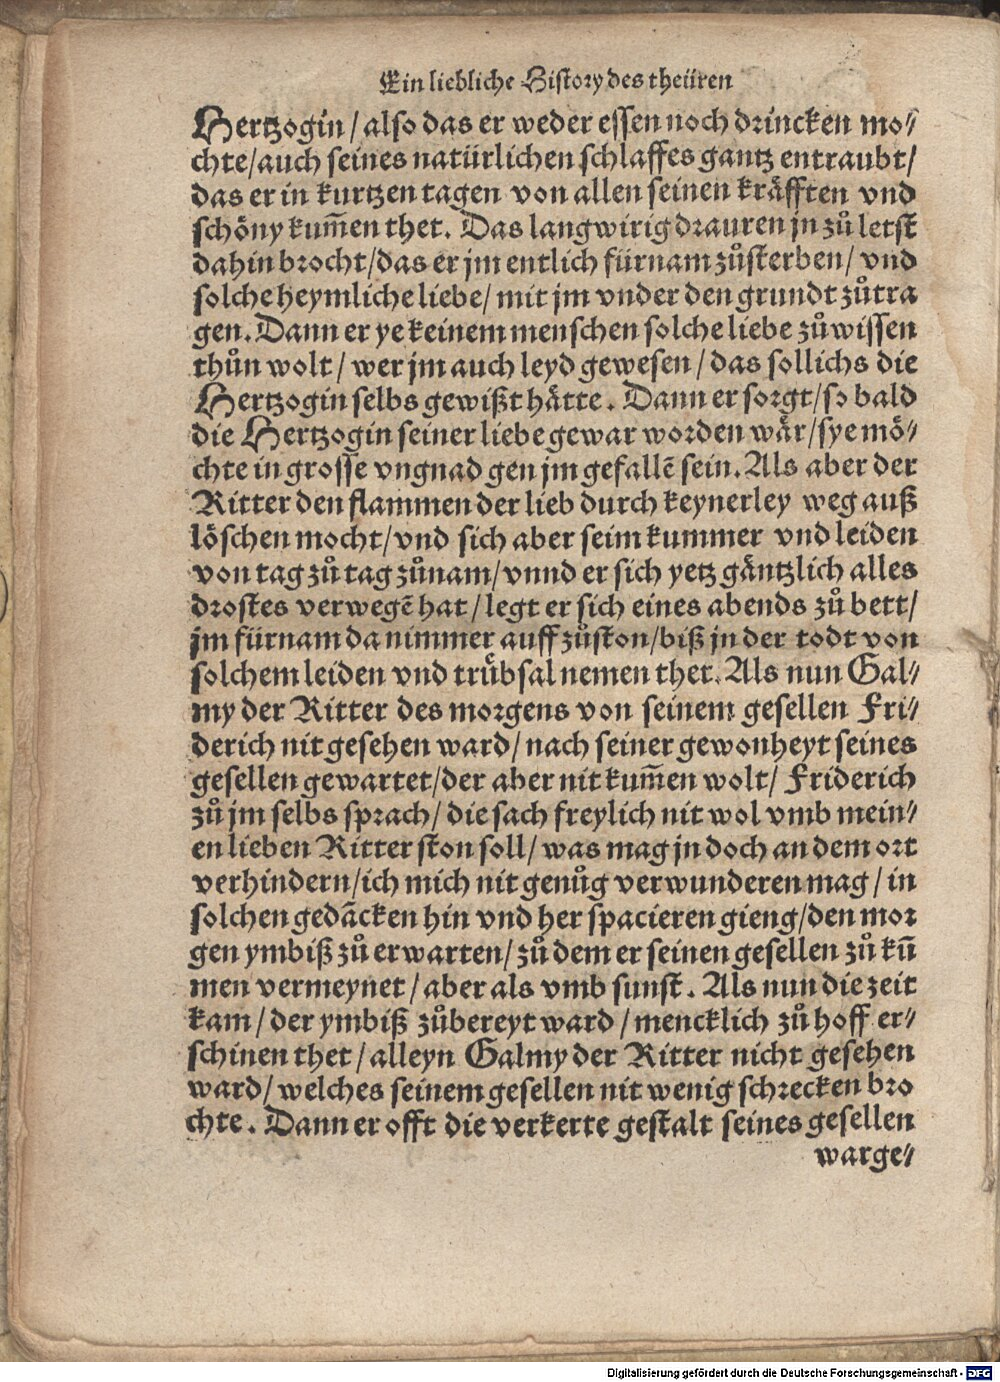 Ein liebliche History des theüren
Hertzogin / also das er weder essen noch drincken mo⸗
chte/auch seines natürlichen schlaffes gantz entraubt/
das er in kurtzen tagen von allen seinen kräfften vnd
schöny kum̃en thet. Das langwirig drauren jn zů letst
dahin brocht/das er jm entlich fürnam zůsterben/ vnd
solche heymliche liebe/ mit jm vnder den grundt zůtra
gen. Dann er ye keinem menschen solche liebe zů wissen
thůn wolt / wer jm auch leyd gewesen / das sollichs die
Hertzogin selbs gewißt hätte. Dann er sorgt/so bald
die Hertzogin seiner liebe gewar worden wår/sye mö⸗
chte in grosse vngnad gen jm gefallẽ sein. Als aber der
Ritter den flammen der lieb durch keynerley weg auß
löschen mocht/vnd sich aber seim kummer vnd leiden
von tag zů tag zůnam/vnnd er sich yetz gäntzlich alles
drostes verwegẽ hat/legt er sich eines abends zů bett/
jm fürnam da nimmer auff zůston/biß jn der todt von
solchem leiden vnd trůbsal nemen thet. Als nun Gal⸗
my der Ritter des morgens von seinem gesellen Fri⸗
derich nit gesehen ward/ nach seiner gewonheyt seines
gesellen gewartet/der aber nit kum̃en wolt/ Friderich
zů jm selbs sprach/ die sach freylich nit wol vmb mein⸗
en lieben Ritter ston soll/ was mag jn doch an dem ort
verhindern/ich mich nit genůg verwunderen mag / in
solchen gedãcken hin vnd her spacieren gieng/den mor
gen ymbiß zů erwarten/ zů dem er seinen gesellen zů kũ
men vermeynet / aber als vmb sunst. Als nun die zeit
kam / der ymbiß zůbereyt ward / mencklich zů hoff er⸗
schinen thet / alleyn Galmy der Ritter nicht gesehen
ward/ welches seinem gesellen nit wenig schrecken bro
chte. Dann er offt die verkerte gestalt seines gesellen
warge⸗
Digitalisierung gefördert durch die Deutsche Forschungsgemeinschaft - DFG